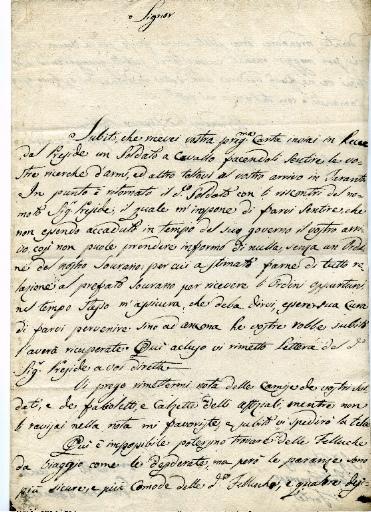 Signor
Subito, che ricevei vostra preg.ma Carta inviai in Lecce
dal Preside un Soldato a Cavallo facendoli sentire le vo-
stre ricerche d'armi, ed altro
al vostro arrivo in Taranto
In punto è ritornato il d.o Soldato con li riscontri del no-
mato Sig.r Preside, il quale m'impone di farvi sentire, che
non essendo accaduto in tempo del suo governo il vostro arri-
vo, così non puole prendere informo di nulla, senza un Ordi-
ne del nostro Sovrano, per cui a stimato farne di tutto re-
lazione al prefato Sovrano per ricevere li Ordini opportuni
nel tempo stesso m'assicura, che deva dirvi, essere sua Cura
di farvi pervenire sino ad ancona le vostre robbe subito
l'averà ricuperate. Qui acluso vi rimetto lettera del d.o
Sig.r Preside a voi diretta.
Vi prego rimettermi nota delle camise de vostri sol-
dati, e de fazoletti, e Calzette delli
mentre non
li
nella nota mi favoriste, e subito vi spedirò la tela
Qui è impossibile potessivo trovare delle Felluche
da viaggio come le desiderate, ma però le paranze sono
più sicure, e più Comode delle d.e Felluche, e quatro di